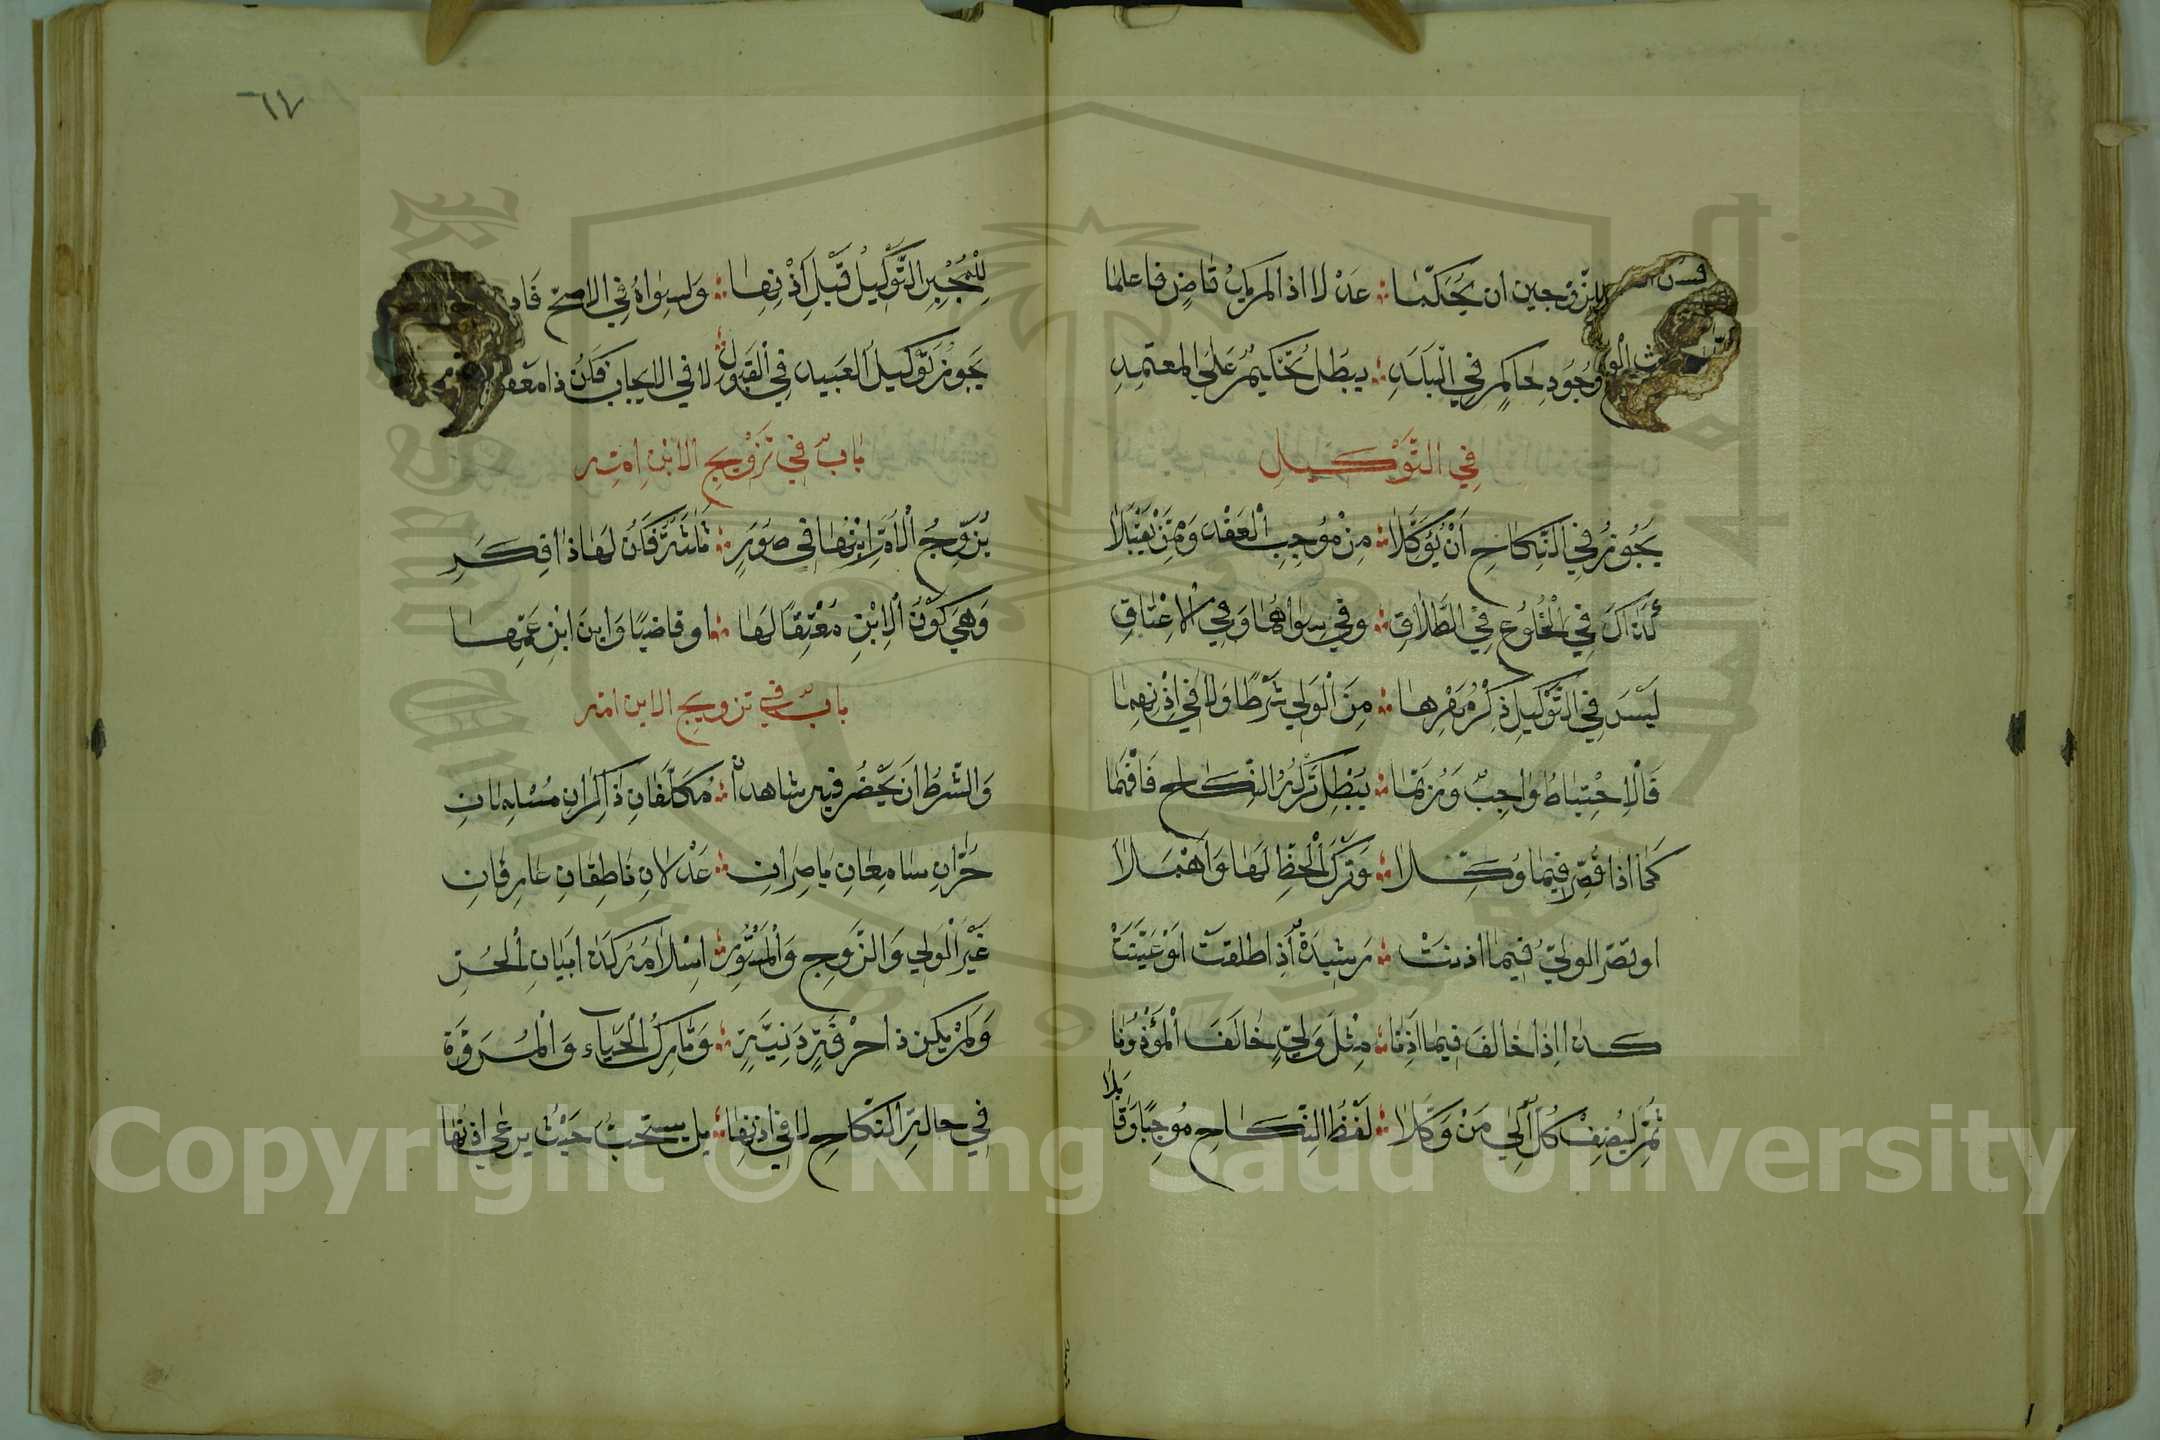 للزوجين ان يحكما ؞ عدلا اذا لم يك قاض فاعلما
وجود حاكم في البلد ؞ يبطل تحكيم على المعتمد
في التوكيل
يَجُوزُ في النِّكاحِ أَنْ يُوَكِّلا ؞ مِنْ مُوجِبِ الْعَقْدِ وَمَنْ يَقْبَلا
كذاك في الخلوع في الطلاق ؞ وفي سواهما وفي الاعتاق
لَيْسَ في التَّوْكيلِ ذِكْرُ مهرها ؞ مِنَ الْوَلي شَرْطًا وَلا في إذنها
فَالاِحْتِياطُ وَاجِبٌ وَرُبَّمَا ؞ يُبْطِلُ تَرْكُهُ النكاح فافهما
كما اذا قصر فيما وكلا ؞ وَتَرَكَ الْحَظَّ لَهَا وَاهْمَلا
او قصر الولي فيما اذنت ؞ رشيدة اذا طلقت اوْ عَيَّنَتْ
كذا اذا خالف فيما اذنا ؞ مِثْلَ وَلِيٍّ خَالَفَ الْمَؤْذُونَا
ثم ليضف كل الى من وكلا ؞ لفظ النكاح موجبا وقابلا
٦٧
لِلْمُجْبِرِ التَّوْكِيلُ قَبْلَ إذْنِهَا ؞ وَلسِواهُ في الاصح
يجوز توكيل العبيد في القبول ؞ لا في الايجاب فكن ذا
بابٌ في تَزْوِيجِ الابن امته
يُزَوِّجُ الْأَمَةَ ابْنُهَا في صُوَرٍ ؞ ثلاثة فكن لها ذا فكر
وَهْيَ كَوْنُ الاِبْنِ مُعْتِقًا لَهَا ؞ او قاضيًا وَابنَ ابْنِ عَمِّها
بابٌ في تزويج الابن امته
وَالشَّرطُ ان يَحْضُر فيه شاهدان ؞ مكلَّفان ذَاكران مُسْلِمان
حُرّانِ سامِعان باصِرَانِ ؞ عَدْلانِ ناطِقانِ عارِفان
غَيْرَ الْوَلي وَالزوج وَالمَسْتُور ؞ اسلامه كذا ابيان الحر
وَلَمْ يكن ذا حرْفَةٍ دَنِيَّةٍ ؞ وَتَارِكُ الْحَيَاء وَالْمُرَوَّة
في حالة النكاح لا في اذنها ؞ بل يستحب حَيْثُ يرعي اذنها
Copyright © King Saud University